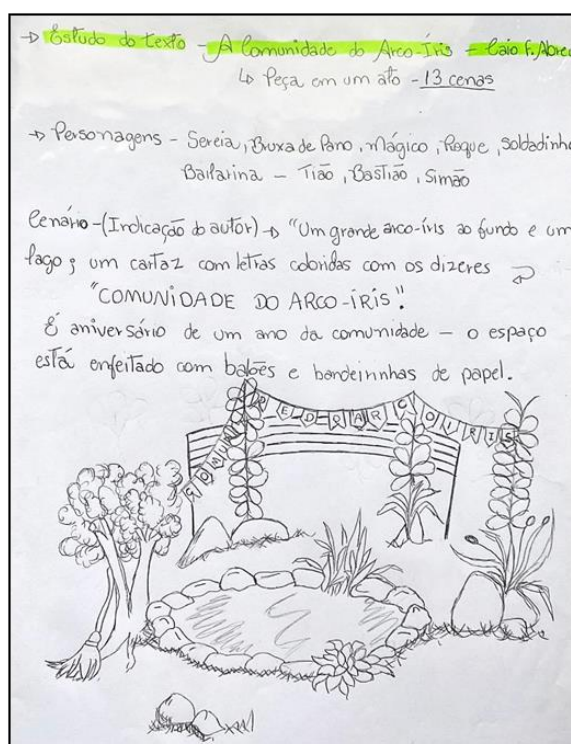 → Estudo do texto - A Comunidade do Arco-Íris - Caio F. Abreu
↳ Peça em um ato - 13 cenas
→ Personagens - Sereia, Bruxa de Pano, Mágico, Roque, Soldadinho
Bailarina - Tião, Bastião, Simão
Cenário - (Indicação do autor) → "Um grande arco-íris ao fundo e um
lago; um cartaz com letras coloridas com os dizeres
"COMUNIDADE DO ARCO-ÍRIS".
É aniversário de um ano da comunidade - o espaço
está enfeitado com balões e bandeirinhas de papel.